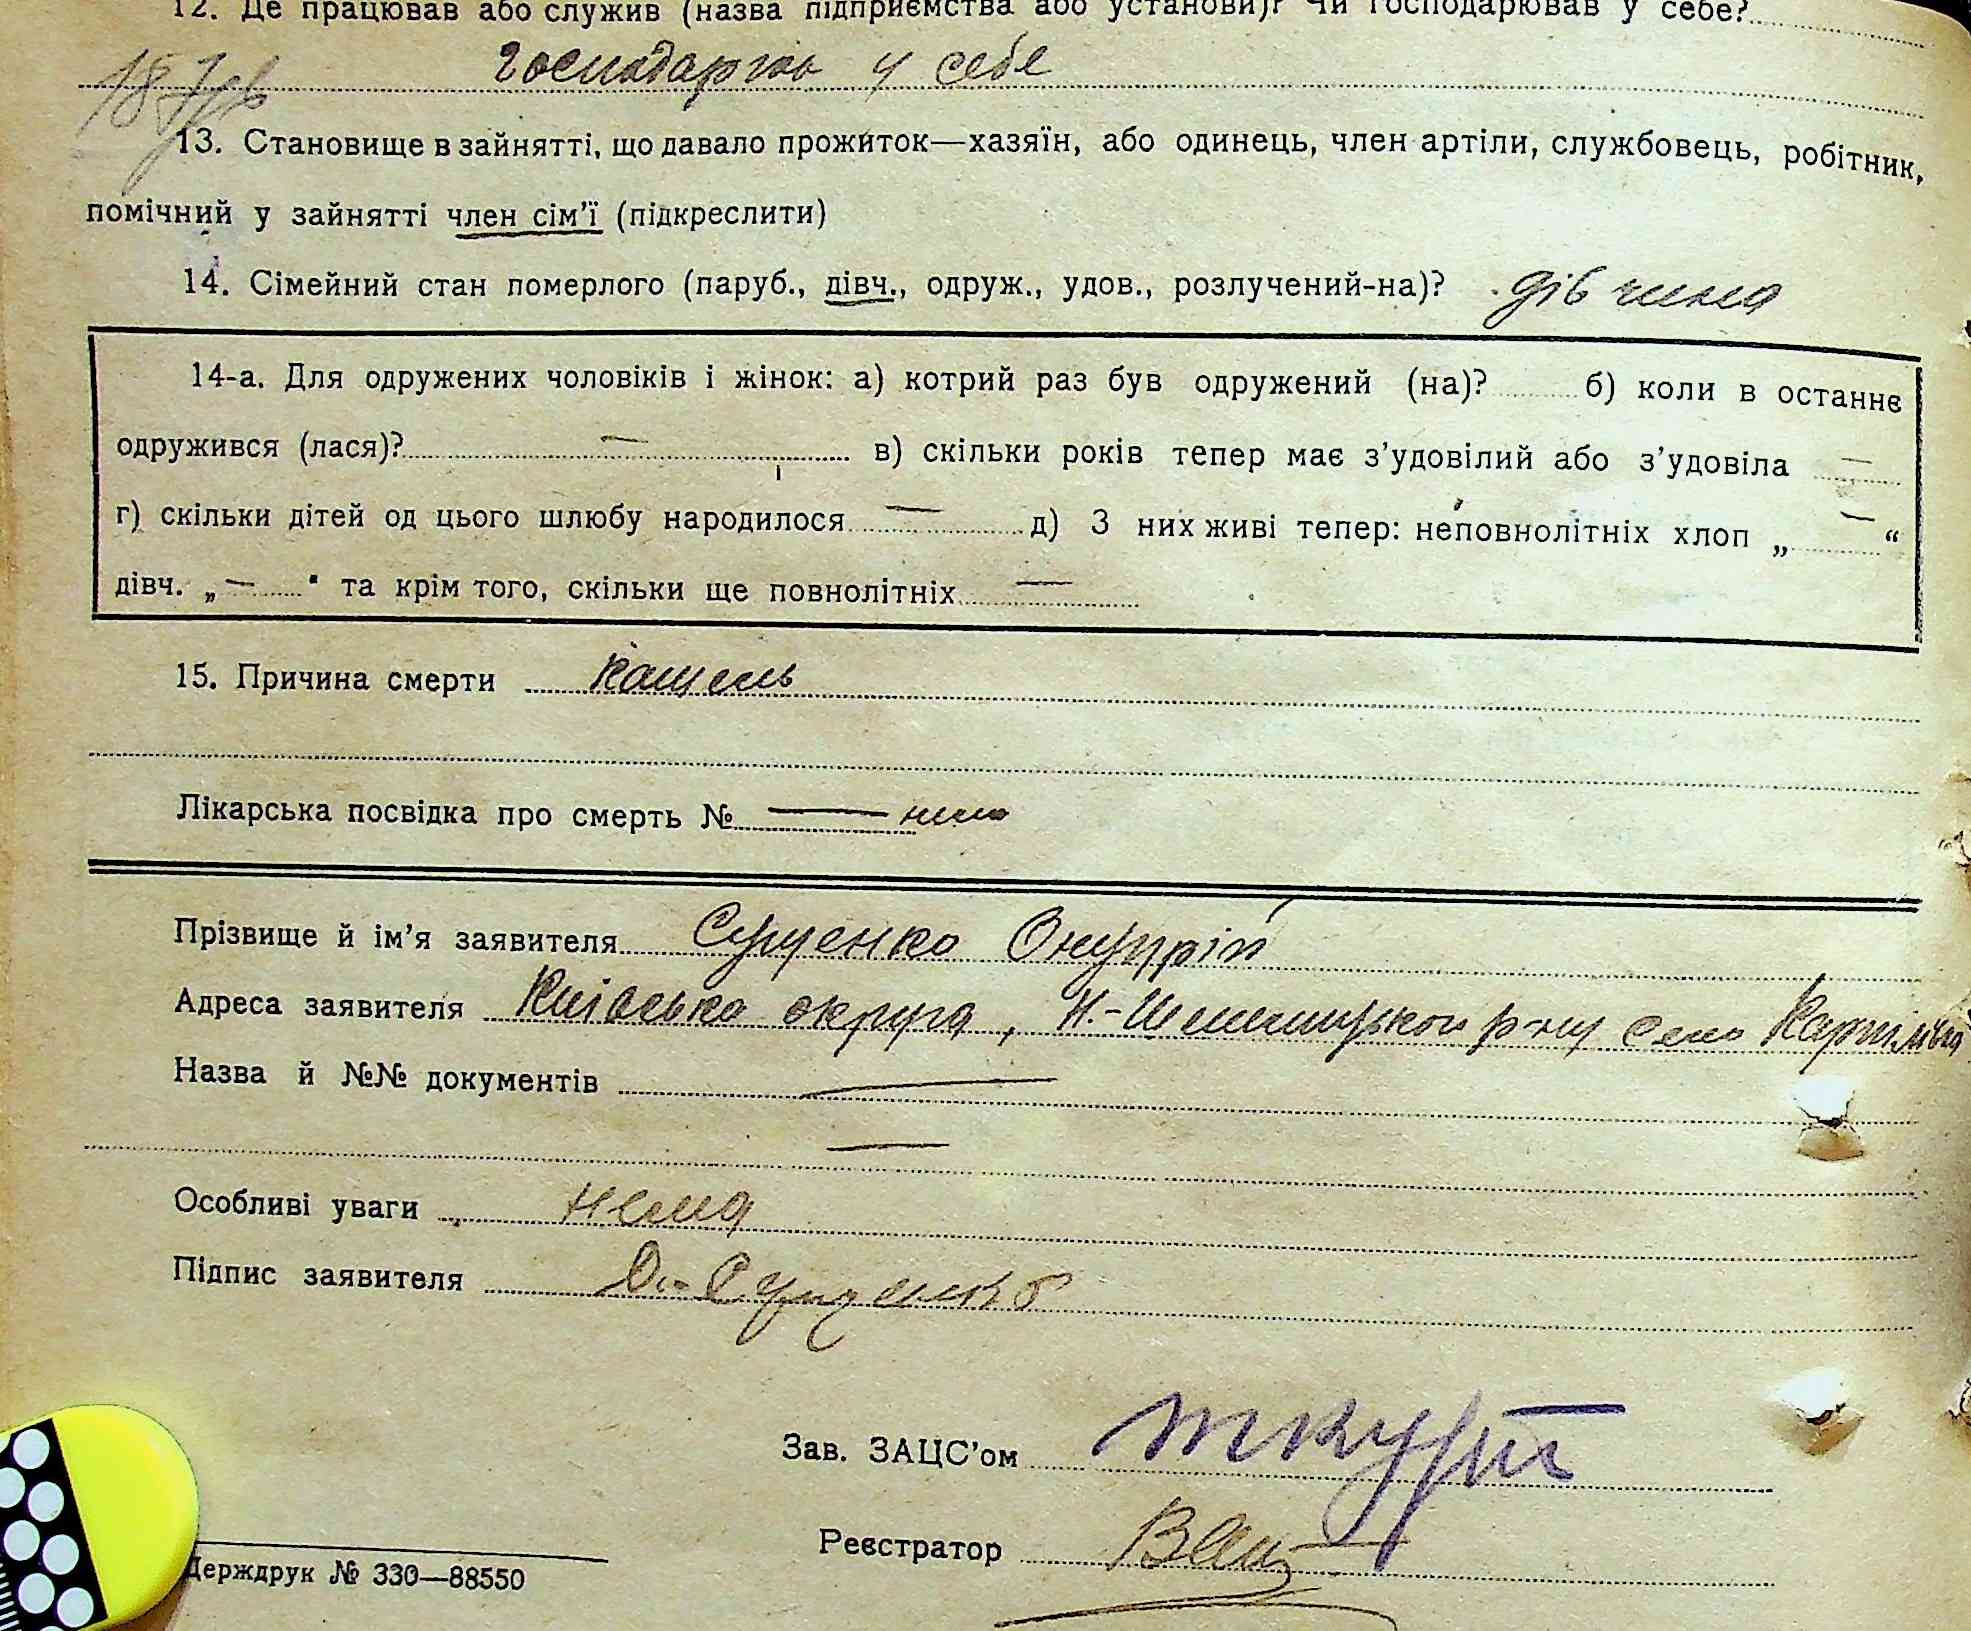 12. Де працював або служив (назва підприємства або установи)? Чи господарював у себе?
господарив у себе
13. Становище в зайнятті, що давало прожиток—хазяїн, або одинець, член артіли, службовець, робітник,
помічний у зайнятті член сім'ї (підкреслити)
14. Сімейний стан померлого (паруб., дівч., одруж., удов., розлучений-на)? дівчина
14-а. Для одружених чоловіків і жінок: а) котрий раз був одружений (на)? б) коли в останнє
одружився (лася)? — в) скільки років тепер має з'удовілий або з'удовіла —
г) скільки дітей од цього шлюбу народилося — д) З них живі тепер: неповнолітніх хлоп „ — “
дівч. „ — " та крім того, скільки ще повнолітніх —
15. Причина смерти Кашель
Лікарська посвідка про смерть № — нема
Прізвище й ім'я заявителя Сущенко Онупрій
Адреса заявителя Київська округа, Н.-Шепелицького р-ну село Карпилівка
Назва й №№ документів —
—
Особливі уваги нема
Підпис заявителя Сущенко
Зав. ЗАЦС'ом
Реєстратор
Держдрук № 330—88550